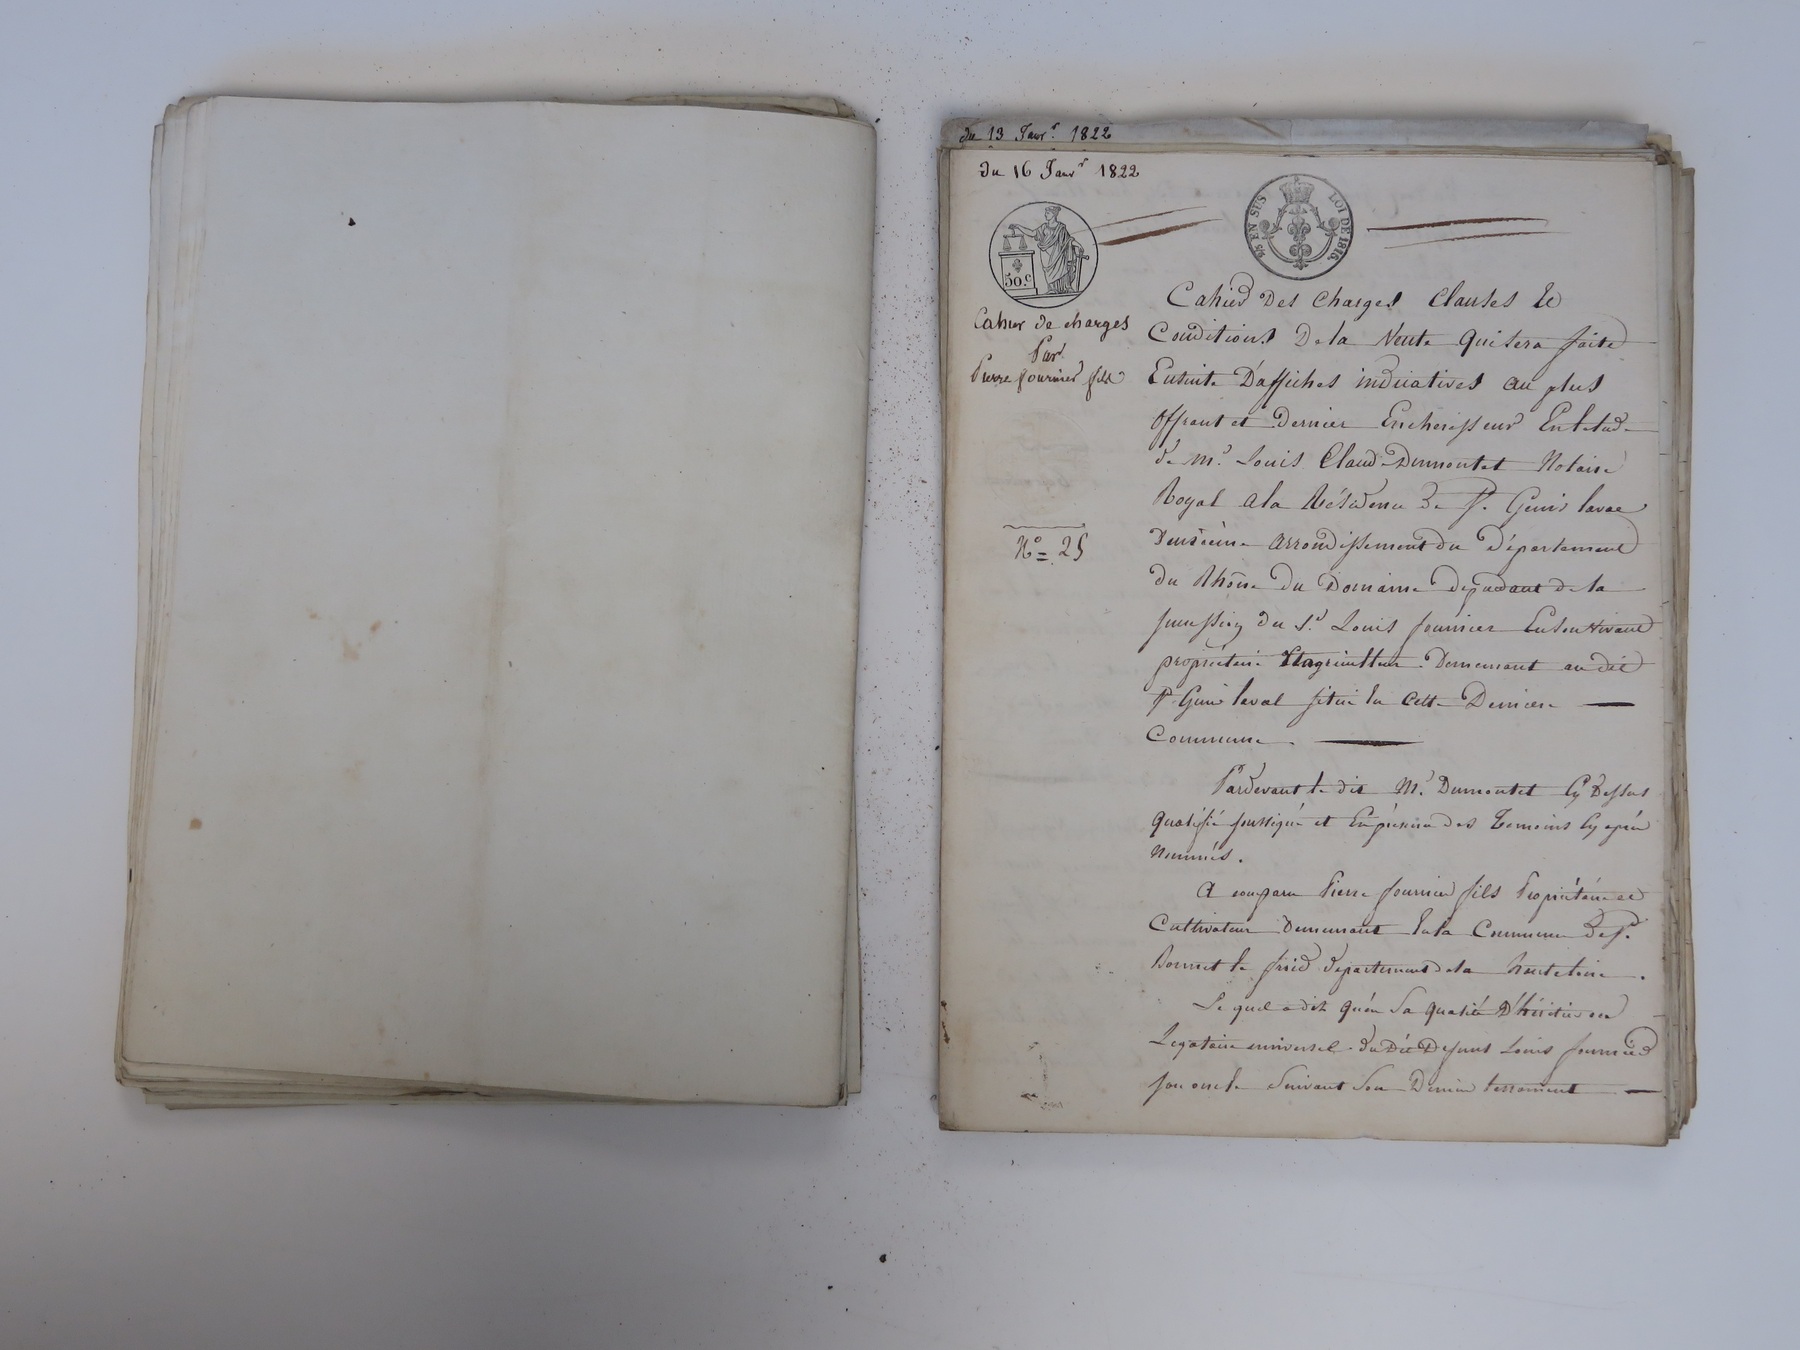 du 13 Janv.r 1822
du 16 Janv.r 1822
50.c
EN SUS
LOI DE 1816.
Cahier de charges
Par
Pierre fournier fils
N.o 25
Cahier des Charges Clauses Et
Conditions De la Vente qui sera faite
Ensuite D'affiches indicatives au plus
offrant et Dernier Encherisseur En létude
de M.e Louis Claude Dumontet Notaire
Royal a la Résidence De St. Genis laval
Deuxième arrondissement du Département
du Rhône Du Domaine dépendant de la
succession du S.r Louis fournier En son vivant
propriétaire Et agriculteur Demeurant au dit
St Genis laval situé En Cette Dernière
Commune.
Pardevant le dit M.e Dumontet Cy Dessus
qualifié soussigné et En présence des Temoins Cy après
Nommés.
A comparu Pierre fournier fils Propriétaire et
Cultivateur Demeurant En la Commune de St.
Bonnet le froid département de la haute loire.
Le quel a dit qu'en Sa qualité D'héritier ou
Légataire universel du Dit Defunt Louis fournier
son oncle Suivant Son Dernier testament